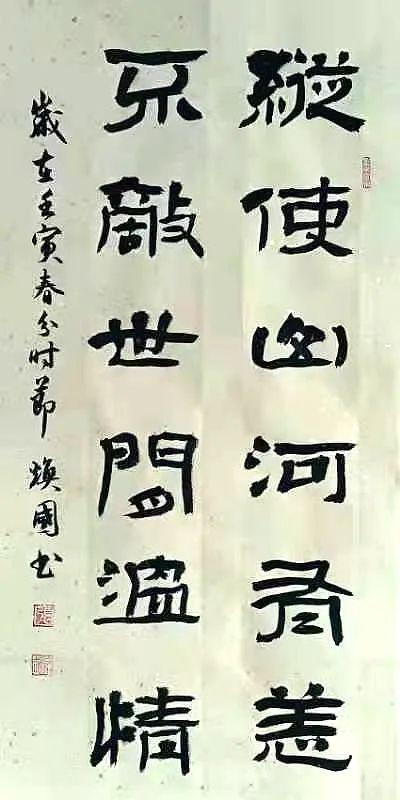 縱使山河有恙
不敵世閒溫情
歲在壬寅春分时節 煥國书